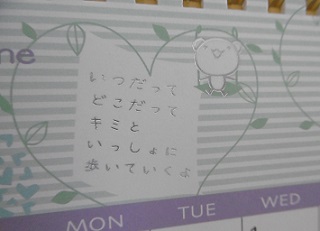 ne
いつだって
どこだって
キミと
いっしょに
歩いていくよ
MON TUE WED